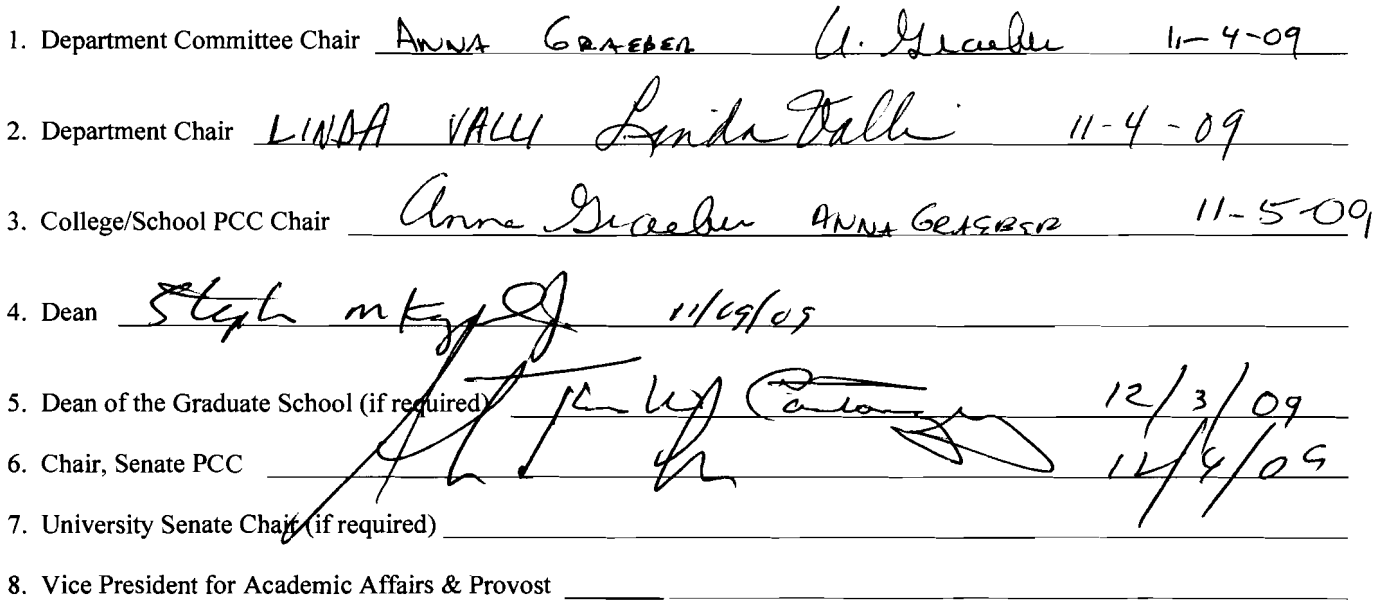 1. Department Committee Chair ANNA GRAEBER A. Graeber 11-4-09
2. Department Chair LINDA VALLI Linda Valli 11-4-09
3. College/School PCC Chair Anna Graeber ANNA GRAEBER 11-5-09
4. Dean 11/09/09
5. Dean of the Graduate School (if required) 12/3/09
6. Chair, Senate PCC 12/4/09
7. University Senate Chair (if required)
8. Vice President for Academic Affairs & Provost